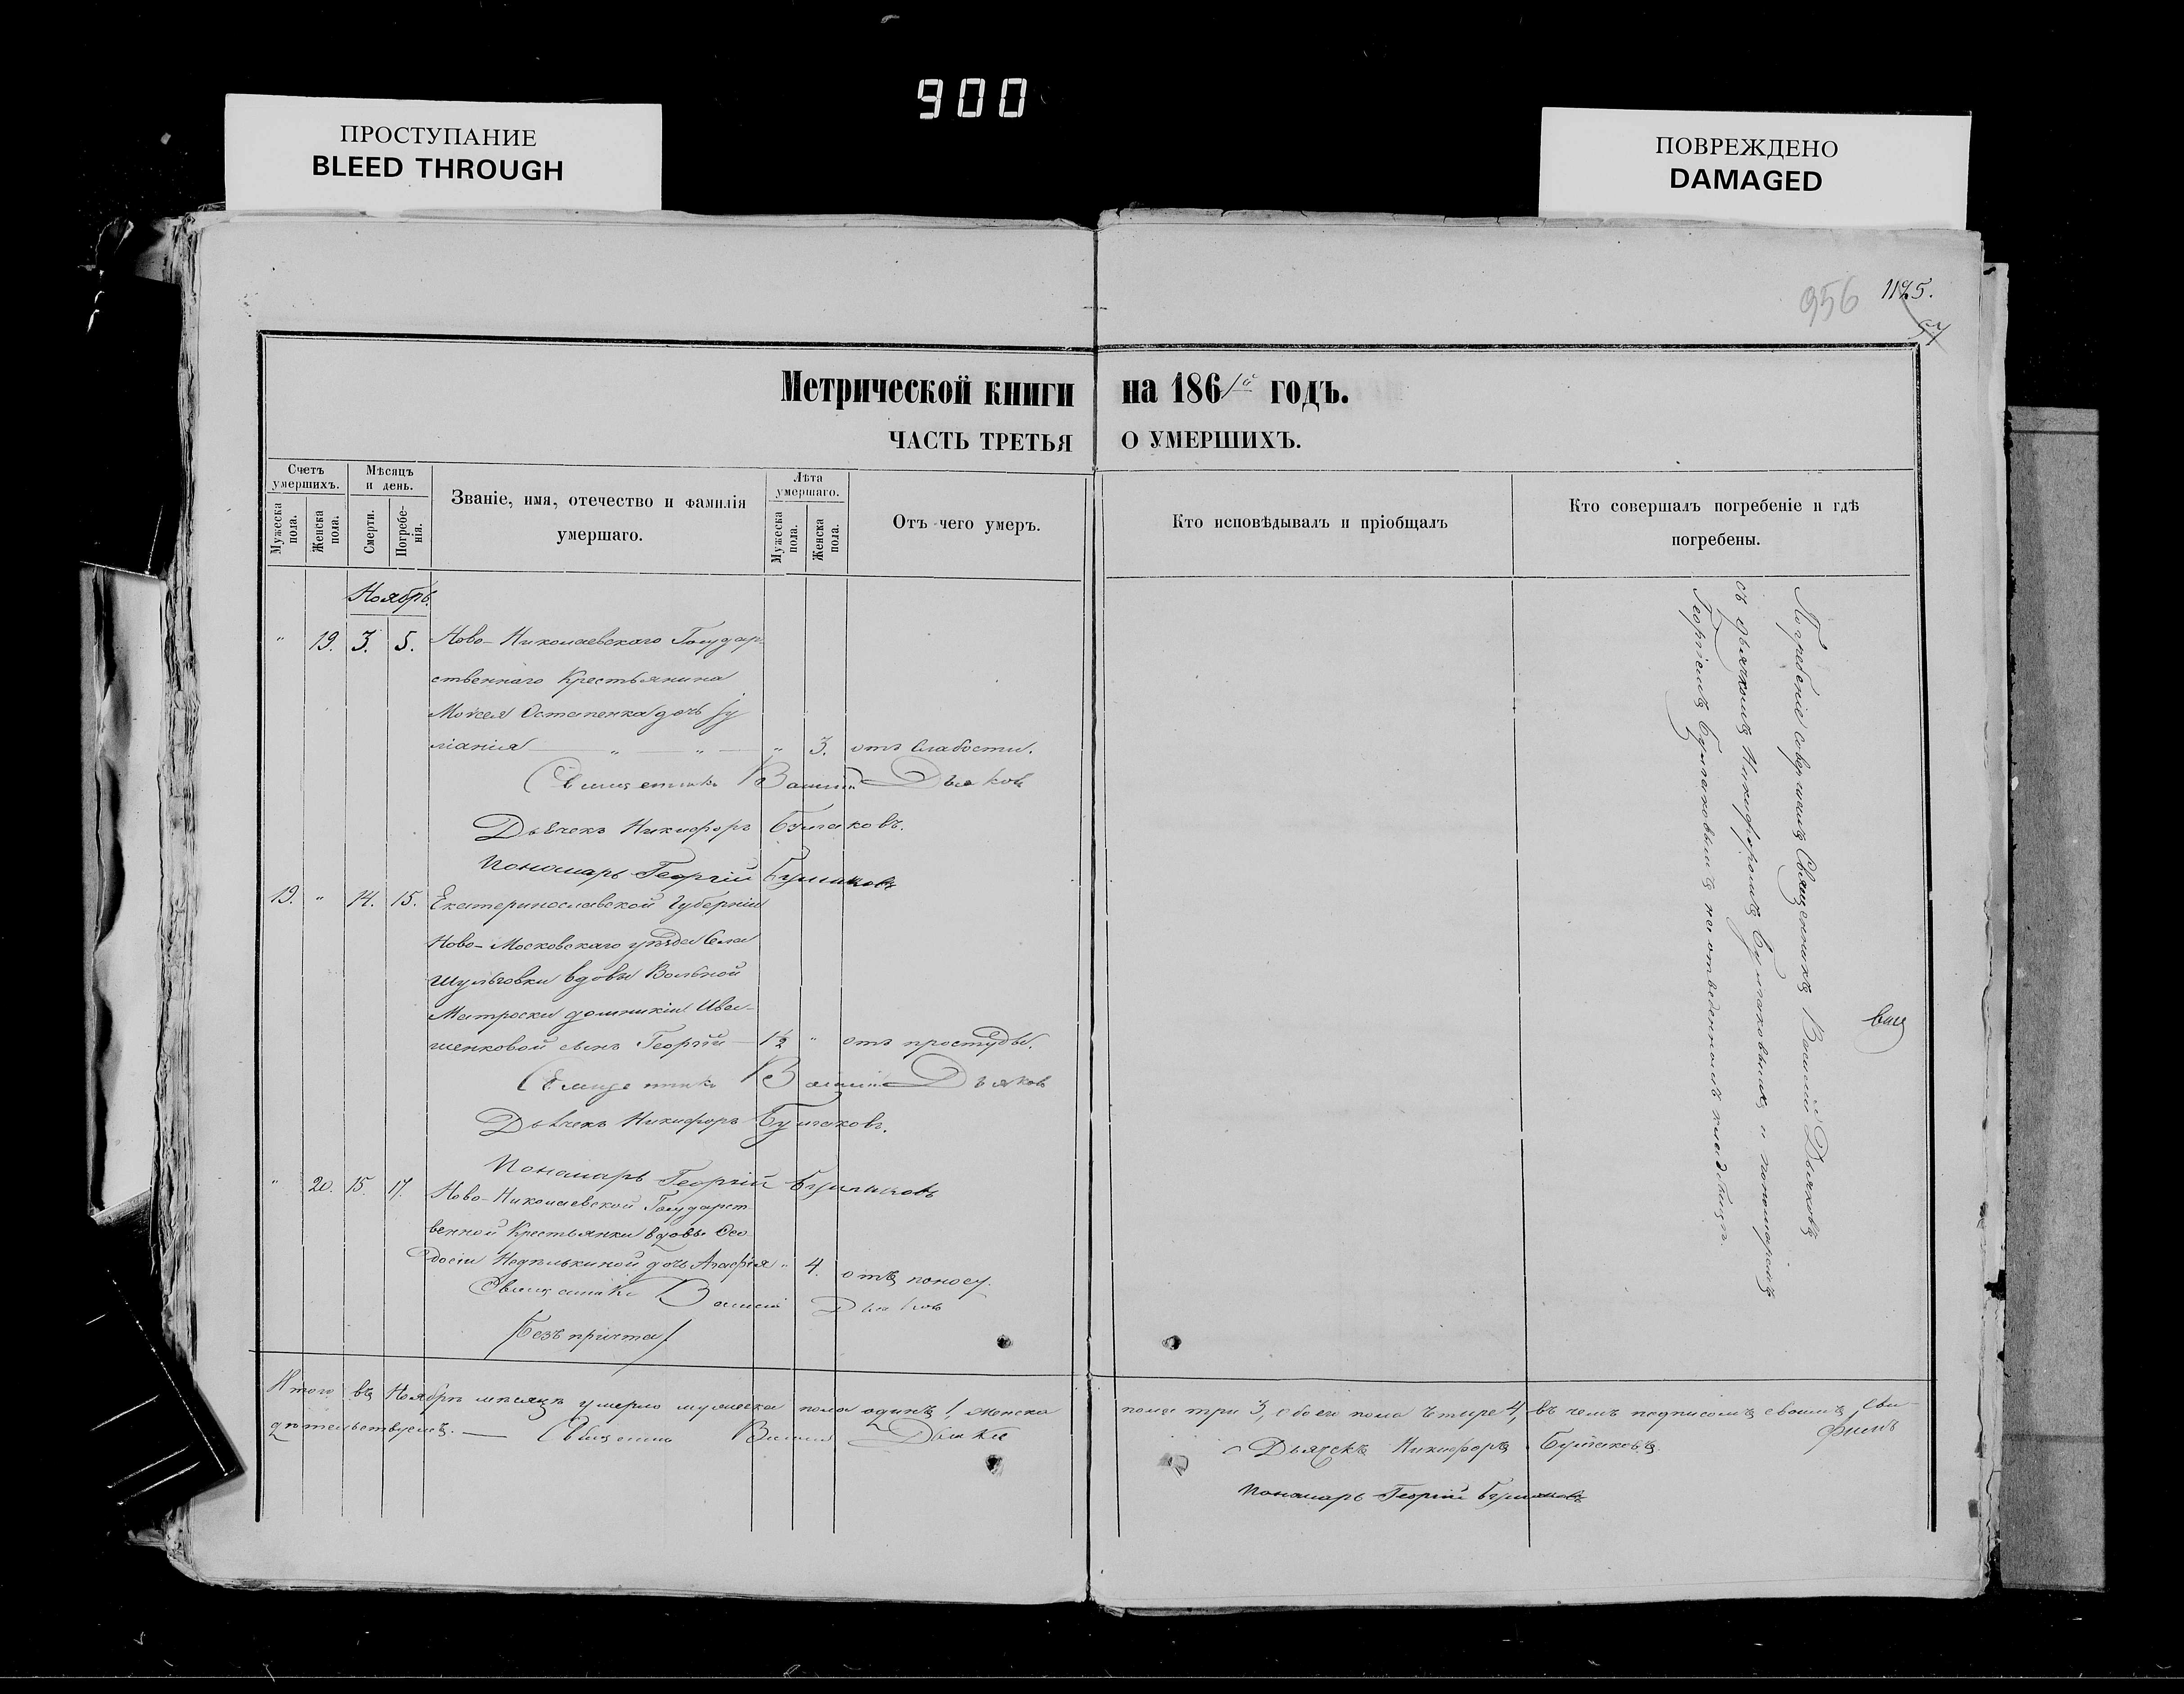 900
ПРОСТУПАНИЕ
BLEED THROUGH
ПОВРЕЖДЕНО
DAMAGED
956 1125.
Метрической книги на 186 1й годъ.
ЧАСТЬ ТРЕТЬЯ О УМЕРШИХЪ.
Счетъ умершихъ.
Мужеска пола.
Женска пола.
Мѣсяцъ и день.
Смерти.
Погребенія.
Званіе, имя, отечество и фамилія умершаго.
Лѣта умершаго.
Мужеска пола.
Женска пола.
Отъ чего умеръ.
Кто исповѣдывалъ и пріобщалъ
Кто совершалъ погребеніе и гдѣ погребены.
Ноябрь.
" 19. 3. 5. Ново-Николаевскаго Государ-
ственнаго Крестьянина
Моѵсея Остапенка дочь Іу
ліанія " " " 3. отъ слабости.
Священникъ Василій Дьяковъ
Дьячекъ Никифоръ Булгаковъ.
Пономарь Георгій Булгаковъ
19. " 14. 15. Екатеринославской Губерніи
Ново-Московскаго уѣзда Села
Шульговки вдовы Вольной
Матроски Ива-
шенковой сынъ Георгій 1½ " отъ простуды.
Священникъ Василій Дьяковъ
Дьячекъ Никифоръ Булгаковъ.
Пономарь Георгій Булгаковъ
" 20. 15. 17. Ново-Николаевской Государст-
венной Крестьянки вдовы Ѳео
досіи Недѣлькиной дочь Агафія " 4. отъ поносу.
Священникъ Василій Дьяковъ
/Безъ причта/
Итого въ Ноябрѣ мѣсяцѣ умерло мужеска пола одинъ 1, женска пола три 3, обоего пола четыре 4, въ чемъ подписомъ своимъ сви-
дѣтельствуемъ. Священникъ Василій Дьяковъ
Дьячекъ Никифоръ Булгаковъ.
Пономарь Георгій Булгаковъ
Погребеніе совершалъ Священникъ Василій Дьяковъ
съ дьячкомъ Никифоромъ Булгаковымъ и пономаремъ
Георгіемъ Булгаковымъ на отведенномъ кладбищѣ.